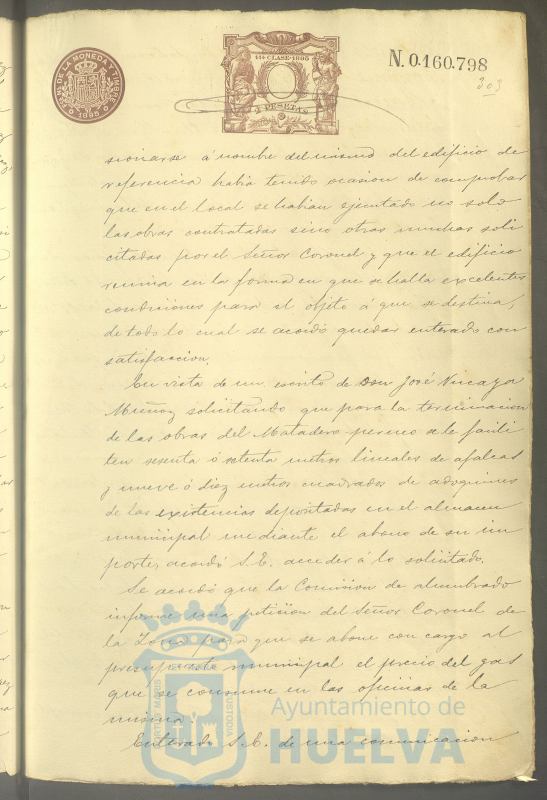 FCA. NAL. DE LA MONEDA Y TIMBRE
1895
11ª CLASE-1895
2 PESETAS
N.0.160.798
303
sionarse á nombre del mismo del edificio de
referencia habia tenido ocasion de comprobar
que en el local se habian ejecutado no solo
las obras contratadas sino otras muchas soli
citadas por el Señor Coronel y que el edificio
reunia en la forma en que se halla excelentes
condiciones para el objeto á que se destina,
de todo lo cual se acordó quedar enterado con
satisfaccion.
En vista de un escrito de Don José
Muñoz solicitando que para la terminacion
de las obras del Matadero se le facili
ten sesenta ó setenta metros lineales de
y nueve ó diez metros cuadrados de adoquines
de las existencias depositadas en el almacen
municipal mediante el abono de su im
porte, acordó S.E. acceder á lo solicitado.
Se acordó que la Comision de alumbrado
informe una peticion del Señor Coronel de
la Zona para que se abone con cargo al
presupuesto municipal el precio del gas
que se consume en las oficinas de la
misma.
Enterado S.E. de una comunicacion
PORTUS MARIS
CUSTODIA
Ayuntamiento de
HUELVA